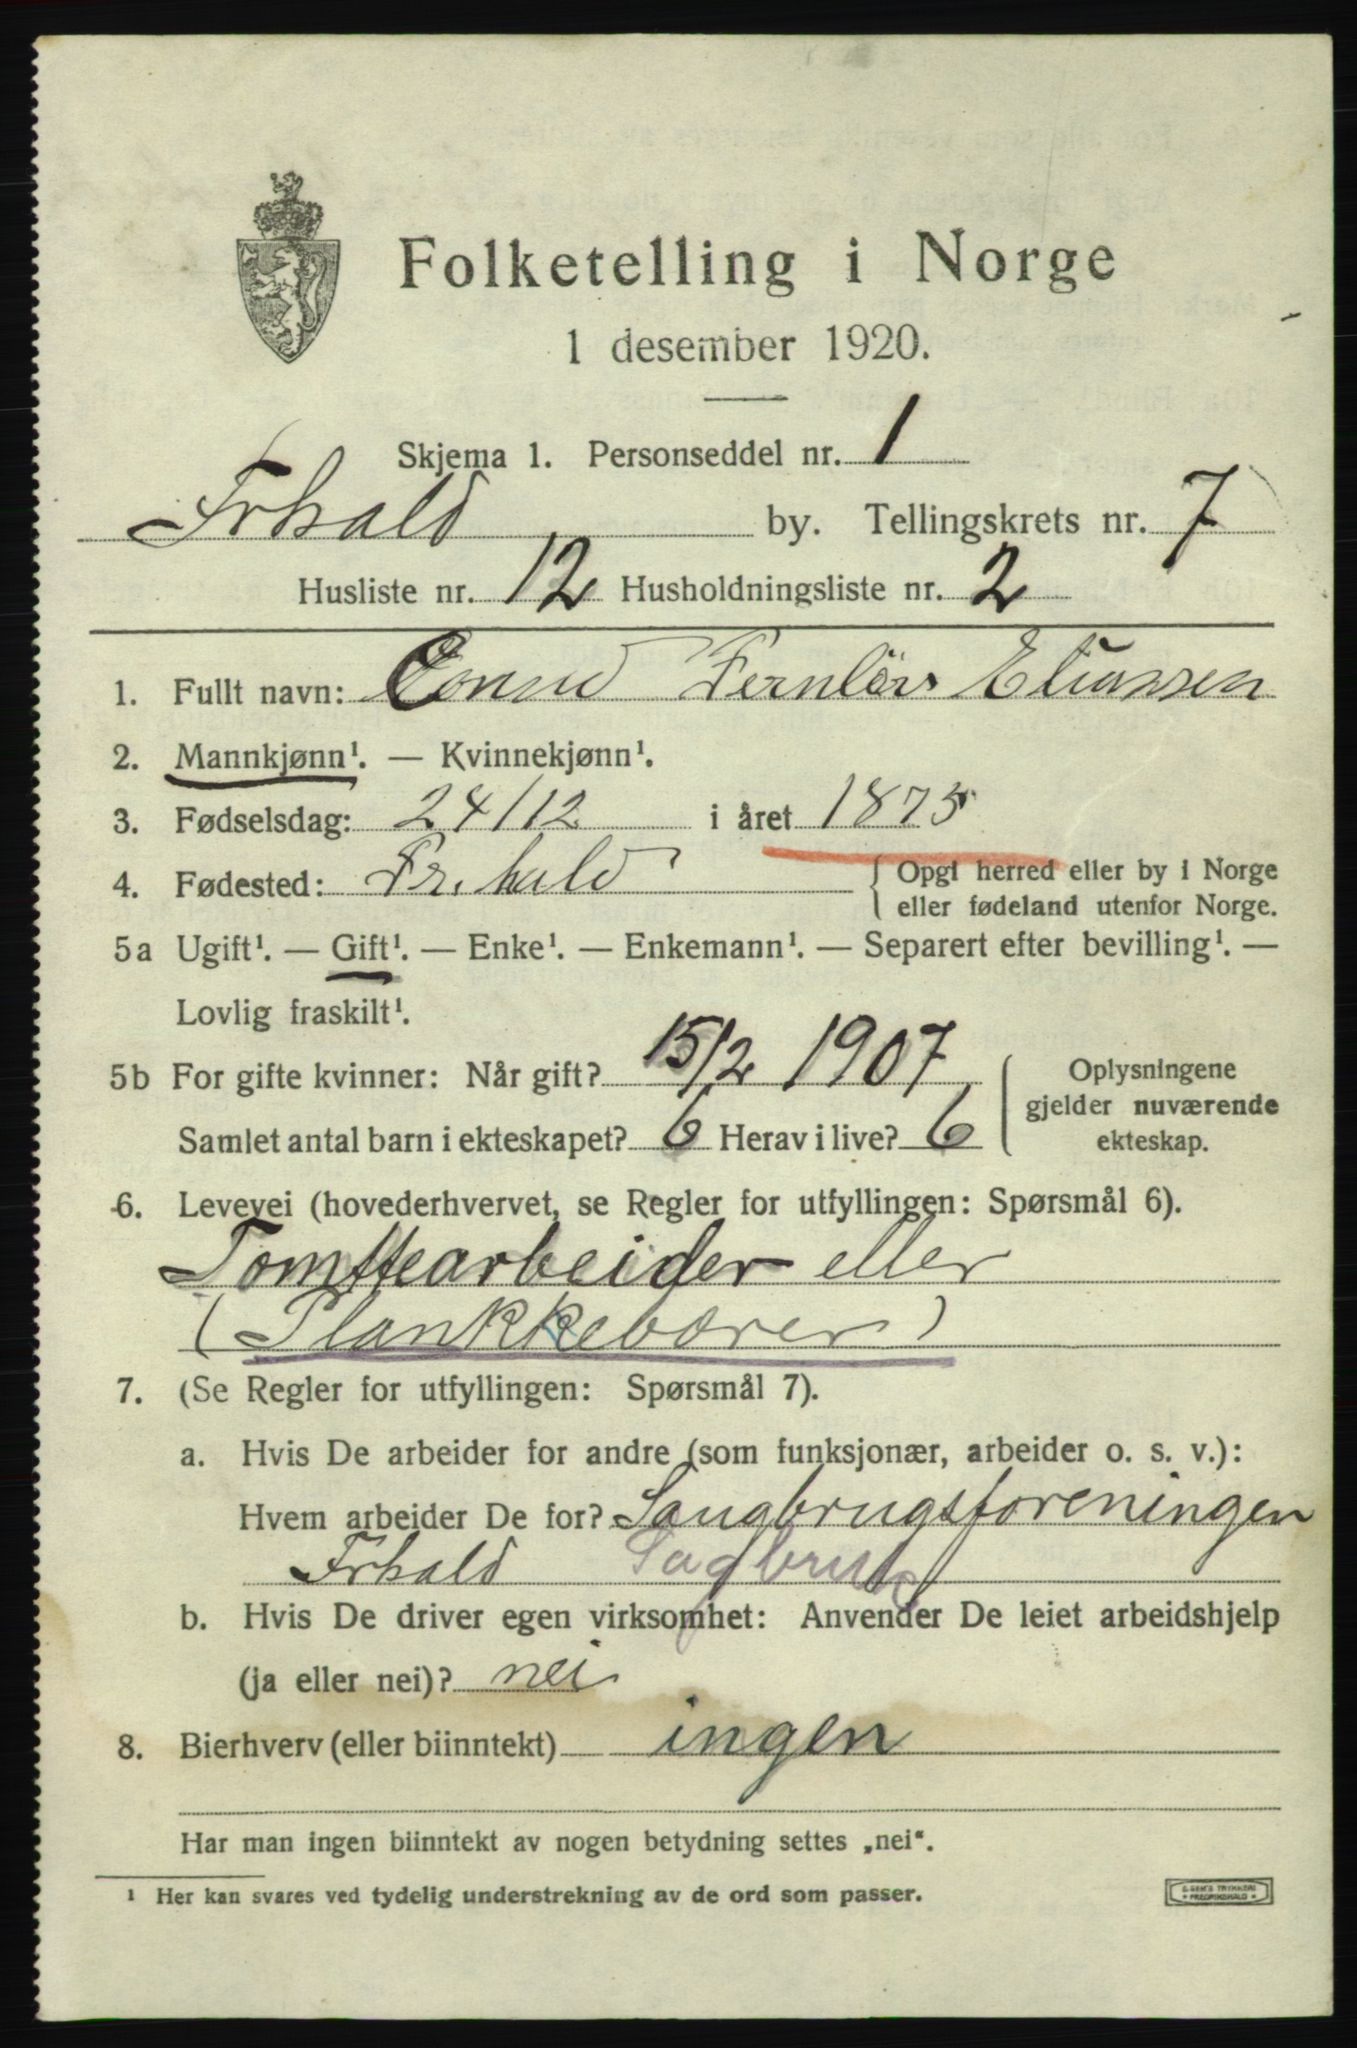 Folketelling i Norge
1 desember 1920.
Skjema 1. Personseddel nr. 1
Frhald by. Tellingskrets nr. 7
Husliste nr. 12 Husholdningsliste nr. 2
1. Fullt navn: Conrad Fernlöv Eliassen
2. Mannkjønn¹. — Kvinnekjønn¹.
3. Fødselsdag: 24/12 i året 1875
4. Fødested: Fr.hald { Opgi herred eller by i Norge
eller fødeland utenfor Norge.
5a Ugift¹. — Gift¹. — Enke¹. — Enkemann¹. — Separert efter bevilling¹. —
Lovlig fraskilt¹.
5b For gifte kvinner: Når gift? 15/2 1907
Samlet antal barn i ekteskapet? 6 Herav i live? 6
Oplysningene
gjelder nuværende
ekteskap.
6. Levevei (hovederhvervet, se Regler for utfyllingen: Spørsmål 6).
Tomttearbeider eller
(Plankkebærer)
7. (Se Regler for utfyllingen: Spørsmål 7).
a. Hvis De arbeider for andre (som funksjonær, arbeider o. s. v.):
Hvem arbeider De for? Saugbrugsforeningen
Frhald Sagbruk
b. Hvis De driver egen virksomhet: Anvender De leiet arbeidshjelp
(ja eller nei)? nei
8. Bierhverv (eller biinntekt) ingen
Har man ingen biinntekt av nogen betydning settes „nei“.
¹ Her kan svares ved tydelig understrekning av de ord som passer.
TRYKKERI
FREDRIKSHALD